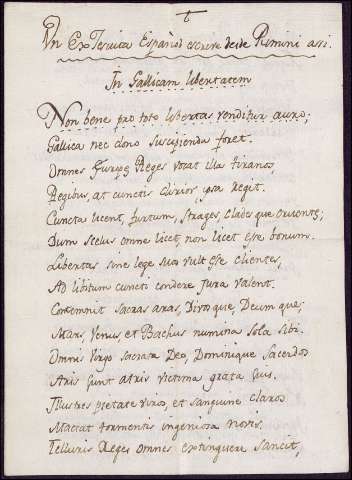 t
Un ExJesuita Español escrive desde Rimini assi.
In Gallicam libertatem
Non bene pro toto libertas venditur auro;
Gallica nec dono suscipienda foret.
Omnes Europæ Reges vocat illa tiranos,
Regibus, at cunctis dirior ipsa Regit.
Cuncta licent, furtum, strages, cladesque cruentę;
Dum scelus omne licet, non licet esse bonum.
Libertas sine lege suos vult esse clientes,
Ad libitum cuncti condere jura valent.
Contemnit sacras aras, Divosque, Deumque;
Mars, Venus, et Bachus numina sola sibi.
Omnis Virgo sacrata Deo, Dominique Sacerdos
Aris sunt atris victima grata suis.
Illustres pietate viros, et sanguine claros
Mactat tormentis ingeniosa novis.
Telluris Reges omnes extinguere sancit,